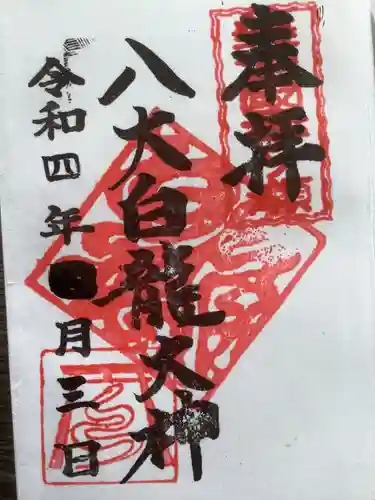 奉拝
八大白龍大神
令和四年月三日